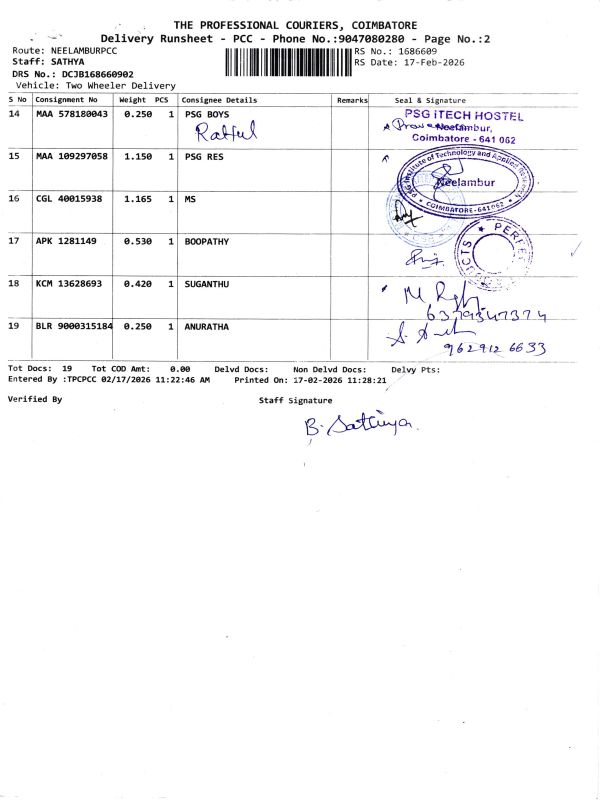 THE PROFESSIONAL COURIERS, COIMBATORE
Delivery Runsheet - PCC - Phone No.:9047080280 - Page No.:2
Route: NEELAMBURPCC
Staff: SATHYA
DRS No.: DCJB168660902
Vehicle: Two Wheeler Delivery
RS No.: 1686609
RS Date: 17-Feb-2026
S No Consignment No Weight PCS Consignee Details Remarks Seal & Signature
14 MAA 578180043 0.250 1 PSG BOYS
PSG iTECH HOSTEL
Neelambur,
Coimbatore - 641 062
15 MAA 109297058 1.150 1 PSG RES
PSG Institute of Technology and Applied Research
Neelambur
* COIMBATORE-641062 *
16 CGL 40015938 1.165 1 MS
17 APK 1281149 0.530 1 BOOPATHY
18 KCM 13628693 0.420 1 SUGANTHU
6379347374
19 BLR 9000315184 0.250 1 ANURATHA
9629126633
Tot Docs: 19 Tot COD Amt: 0.00 Delvd Docs: Non Delvd Docs: Delvy Pts:
Entered By :TPCPCC 02/17/2026 11:22:46 AM Printed On: 17-02-2026 11:28:21
Verified By Staff Signature
B. Sathiya.